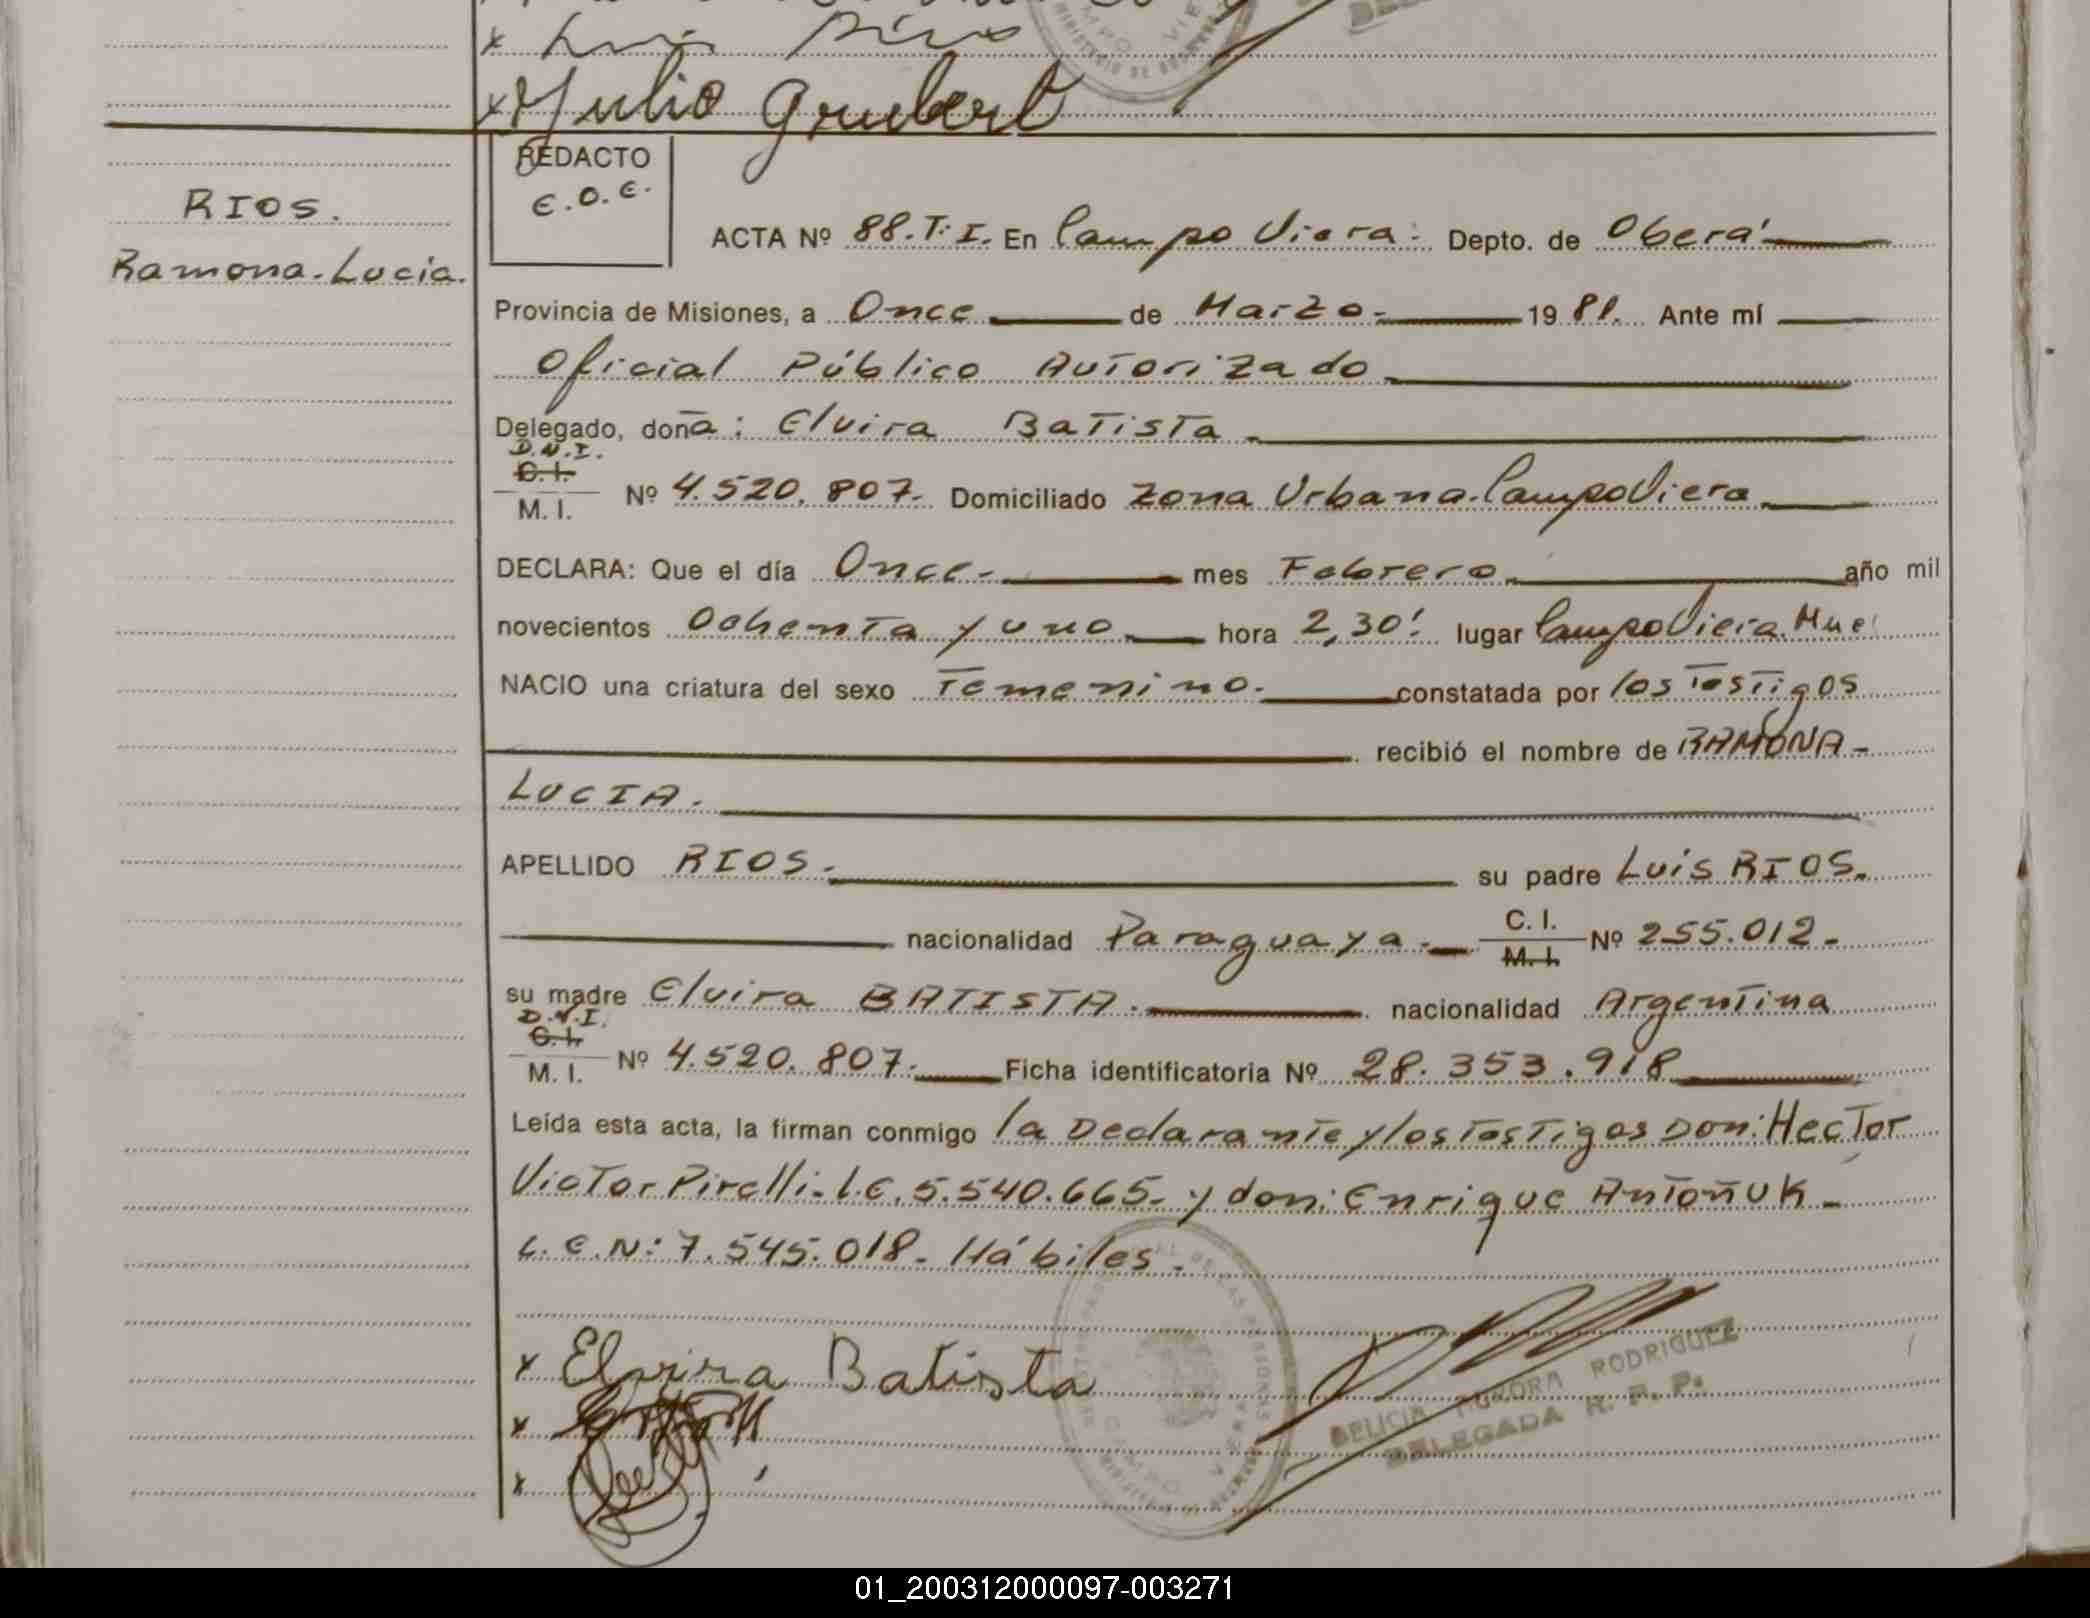 x Luis Ríos
x Julio Grubert
REDACTO
E.O.E.
RIOS.
Ramona.Lucia.
ACTA Nº 88.T.I. En Campo Viera: Depto. de Oberá
Provincia de Misiones, a Once de Marzo.- 1981. Ante mí
Oficial Público Autorizado
Delegado, doña: Elvira Batista
D.N.I.
C.I.
M. I. Nº 4.520.807.- Domiciliado Zona Urbana.Campo Viera
DECLARA: Que el día Once.- mes Febrero año mil
novecientos Ochenta y uno hora 2,30! lugar Campo Viera.
NACIO una criatura del sexo Femenino.- constatada por los Testigos
recibió el nombre de RAMONA-
LUCIA.
APELLIDO RIOS.- su padre Luis RIOS.
nacionalidad Paraguaya.- C. I. M. I. Nº 255.012.-
su madre Elvira BATISTA.- nacionalidad Argentina
D.N.I.
C.I.
M. I. Nº 4.520.807.- Ficha identificatoria Nº 28.353.918
Leída esta acta, la firman conmigo la Declarante y los Testigos Don: Hector
Victor Pirelli.- L.E.5.540.665.- y don: Enrique Antoñuk-
L.E.N: 7.545.018.- Hábiles.-
x Elvira Batista
x
x
DELICIA AURORA RODRIGUEZ
DELEGADA R. P. P.
01_200312000097-003271